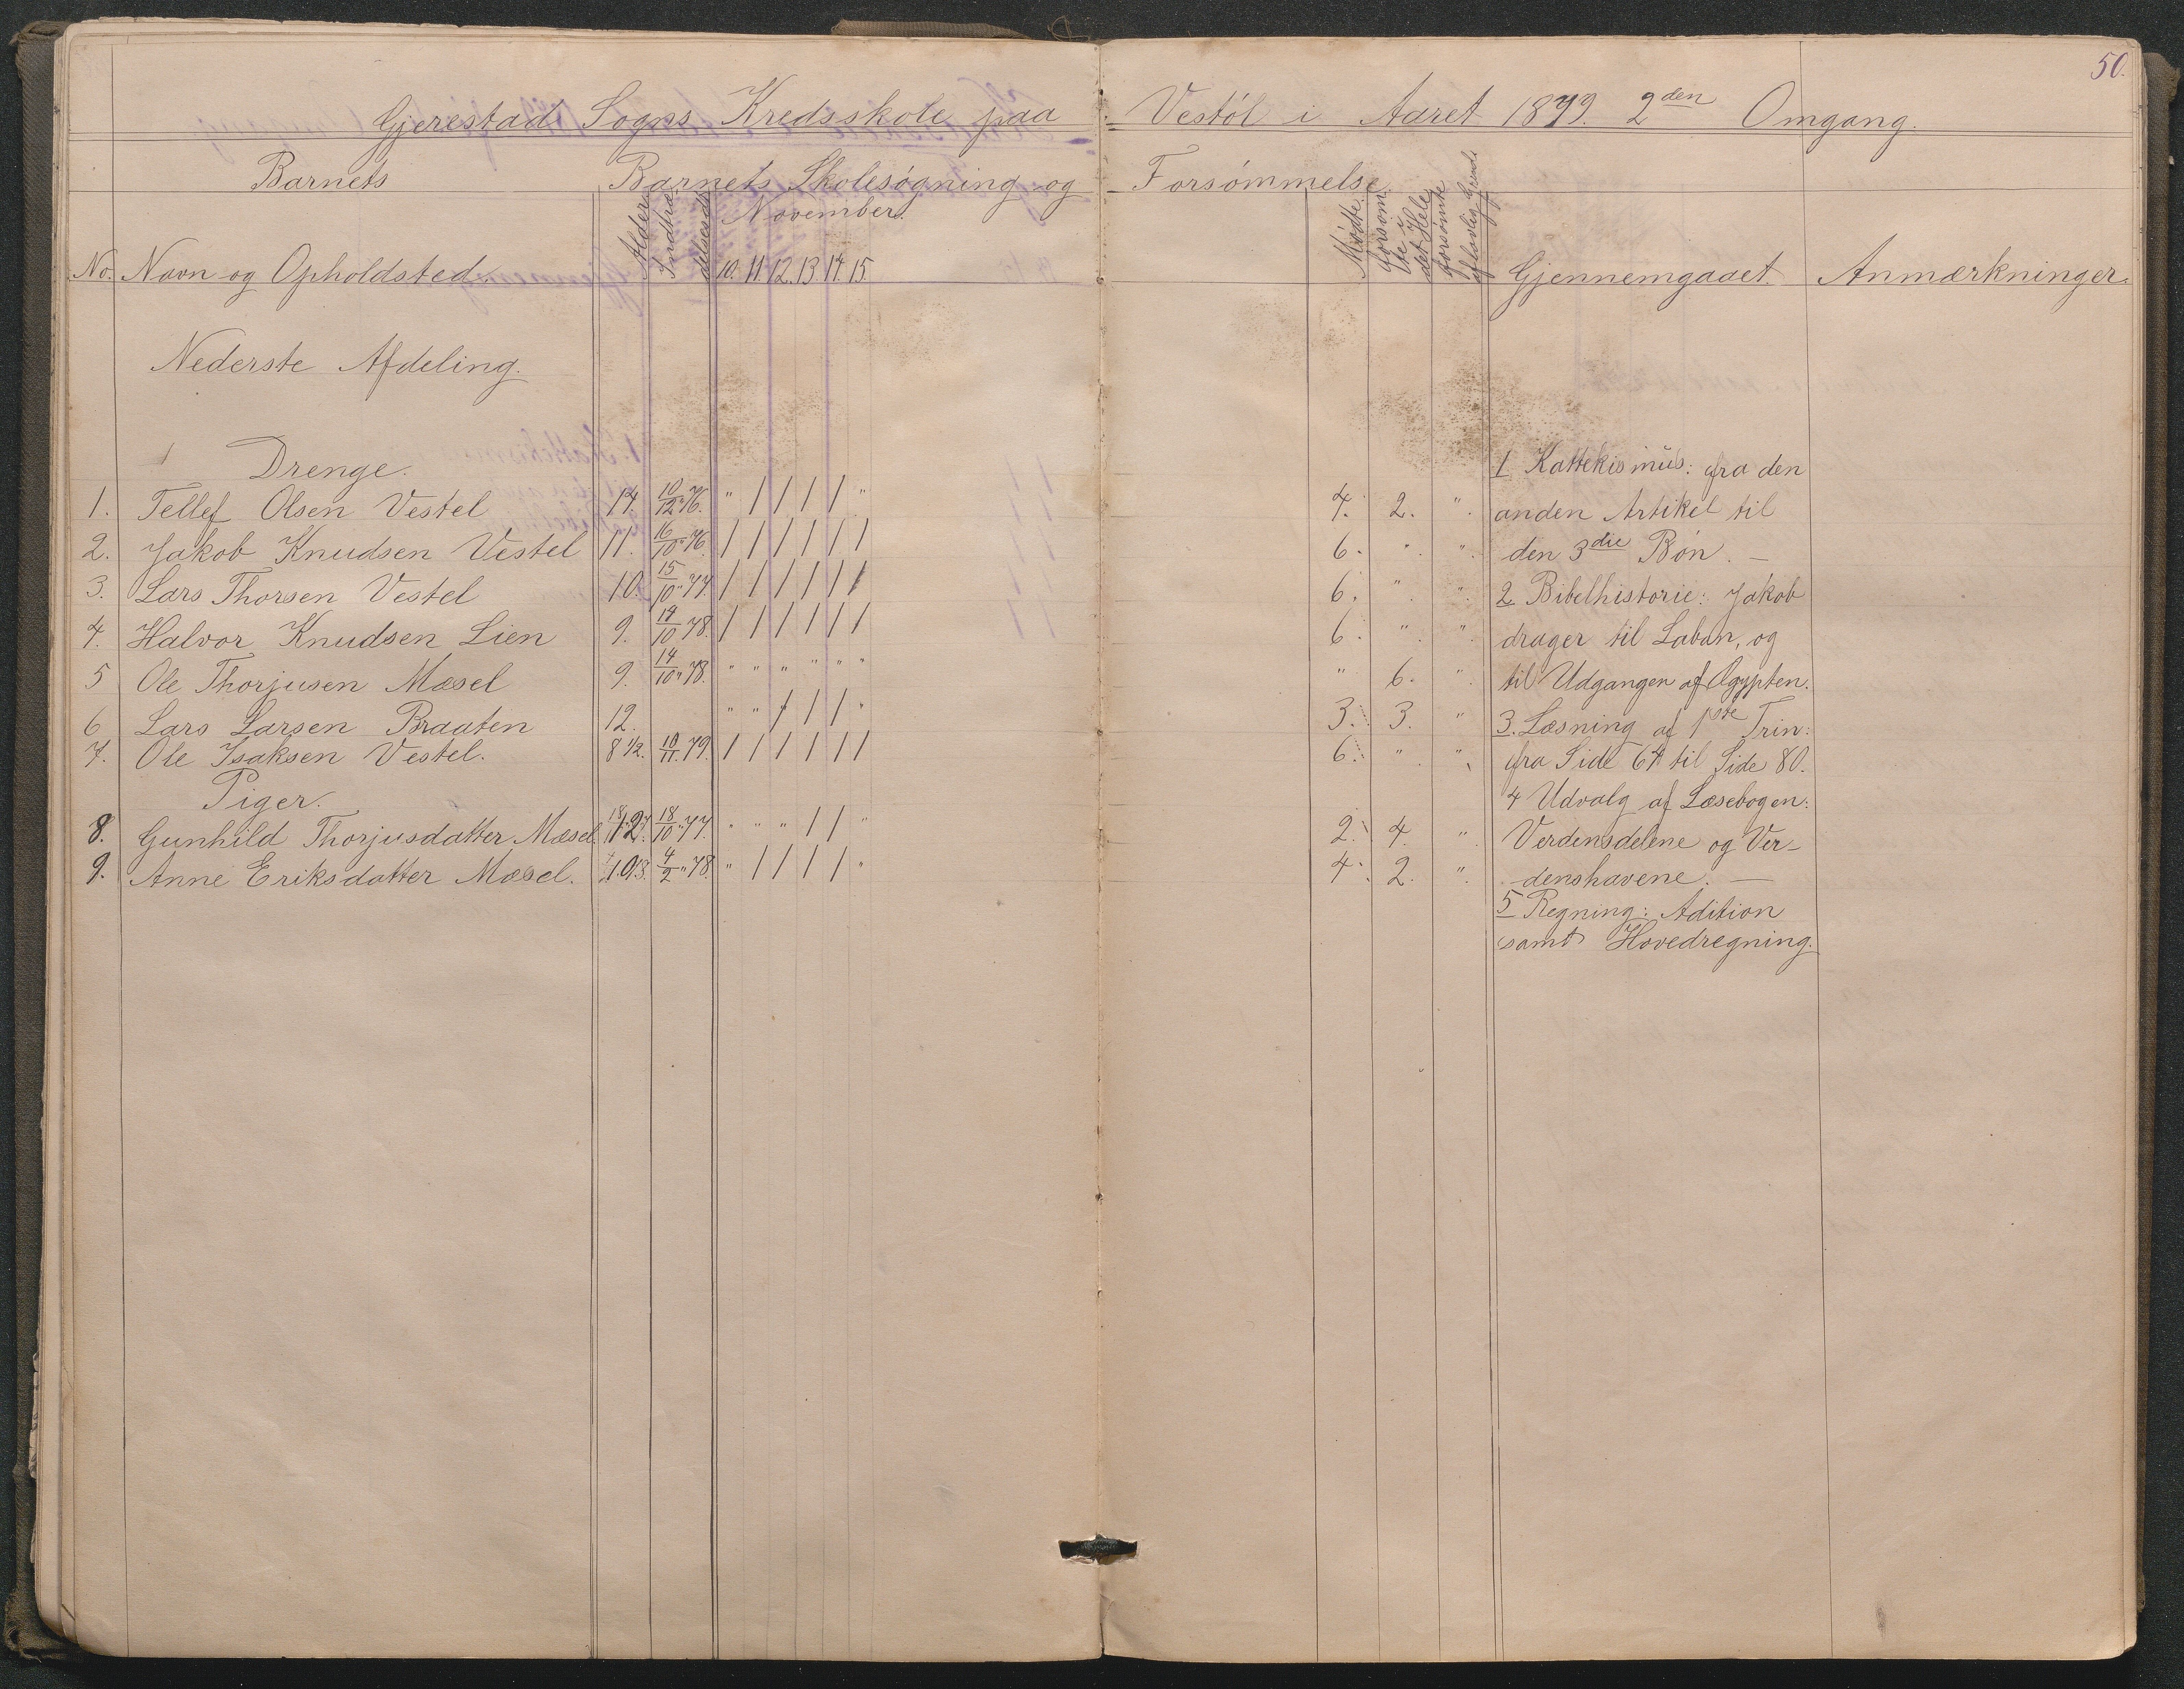 50.
Gjerestad Sogns Kredsskole paa Vestöl i Aaret 1879. 2den Omgang.
Barnets Barnets Skolesøgning og Forsømmelse
No. Navn og Opholdsted. Alder Indtrædelsestid November. 10. 11. 12. 13. 14. 15. Mødte. Forsømte i det Hele forsømte uflovlig Grund Gjennemgaaet. Anmærkninger.
Nederste Afdeling.
Drenge. 1 Kattekismus: fra den
1. Tellef Olsen Vestel 14. 10/12 "76. " / / / / " 4. 2. " anden Artikel til
2. Jakob Knudsen Vestel 11. 16/10 "76. / / / / / / 6. " " den 3die Bøn. —
3. Lars Thorsen Vestel 10. 15/10 "77. / / / / / / 6. " " 2 Bibelhistorie: Jakob
4. Halvor Knudsen Lien 9. 14/10 78. / / / / / / 6. " " drager til Laban, og
5 Ole Thorjusen Mæsel 9. 14/10 "78. " " " " " " " 6. " til Udgangen af Ægypten.
6 Lars Larsen Braaten 12. " " / / / " 3. 3. " 3. Læsning af 1ste Trin:
7. Ole Isaksen Vestel. 8 1/2. 10/11. 79. / / / / / / 6. " " fra Side 64 til Side 80.
Piger. 4 Udvalg af Læsebogen:
8. Gunhild Thorjusdatter Mæsel. 12. 18/10 "77. " " " / / " 2. 4. " Verdensdelene og Ver-
9. Anne Eriksdatter Mæsel. 10. 4/2 "78. " / / / / " 4. 2. " denshavene. —
5 Regning: Adition
samt Hovedregning.